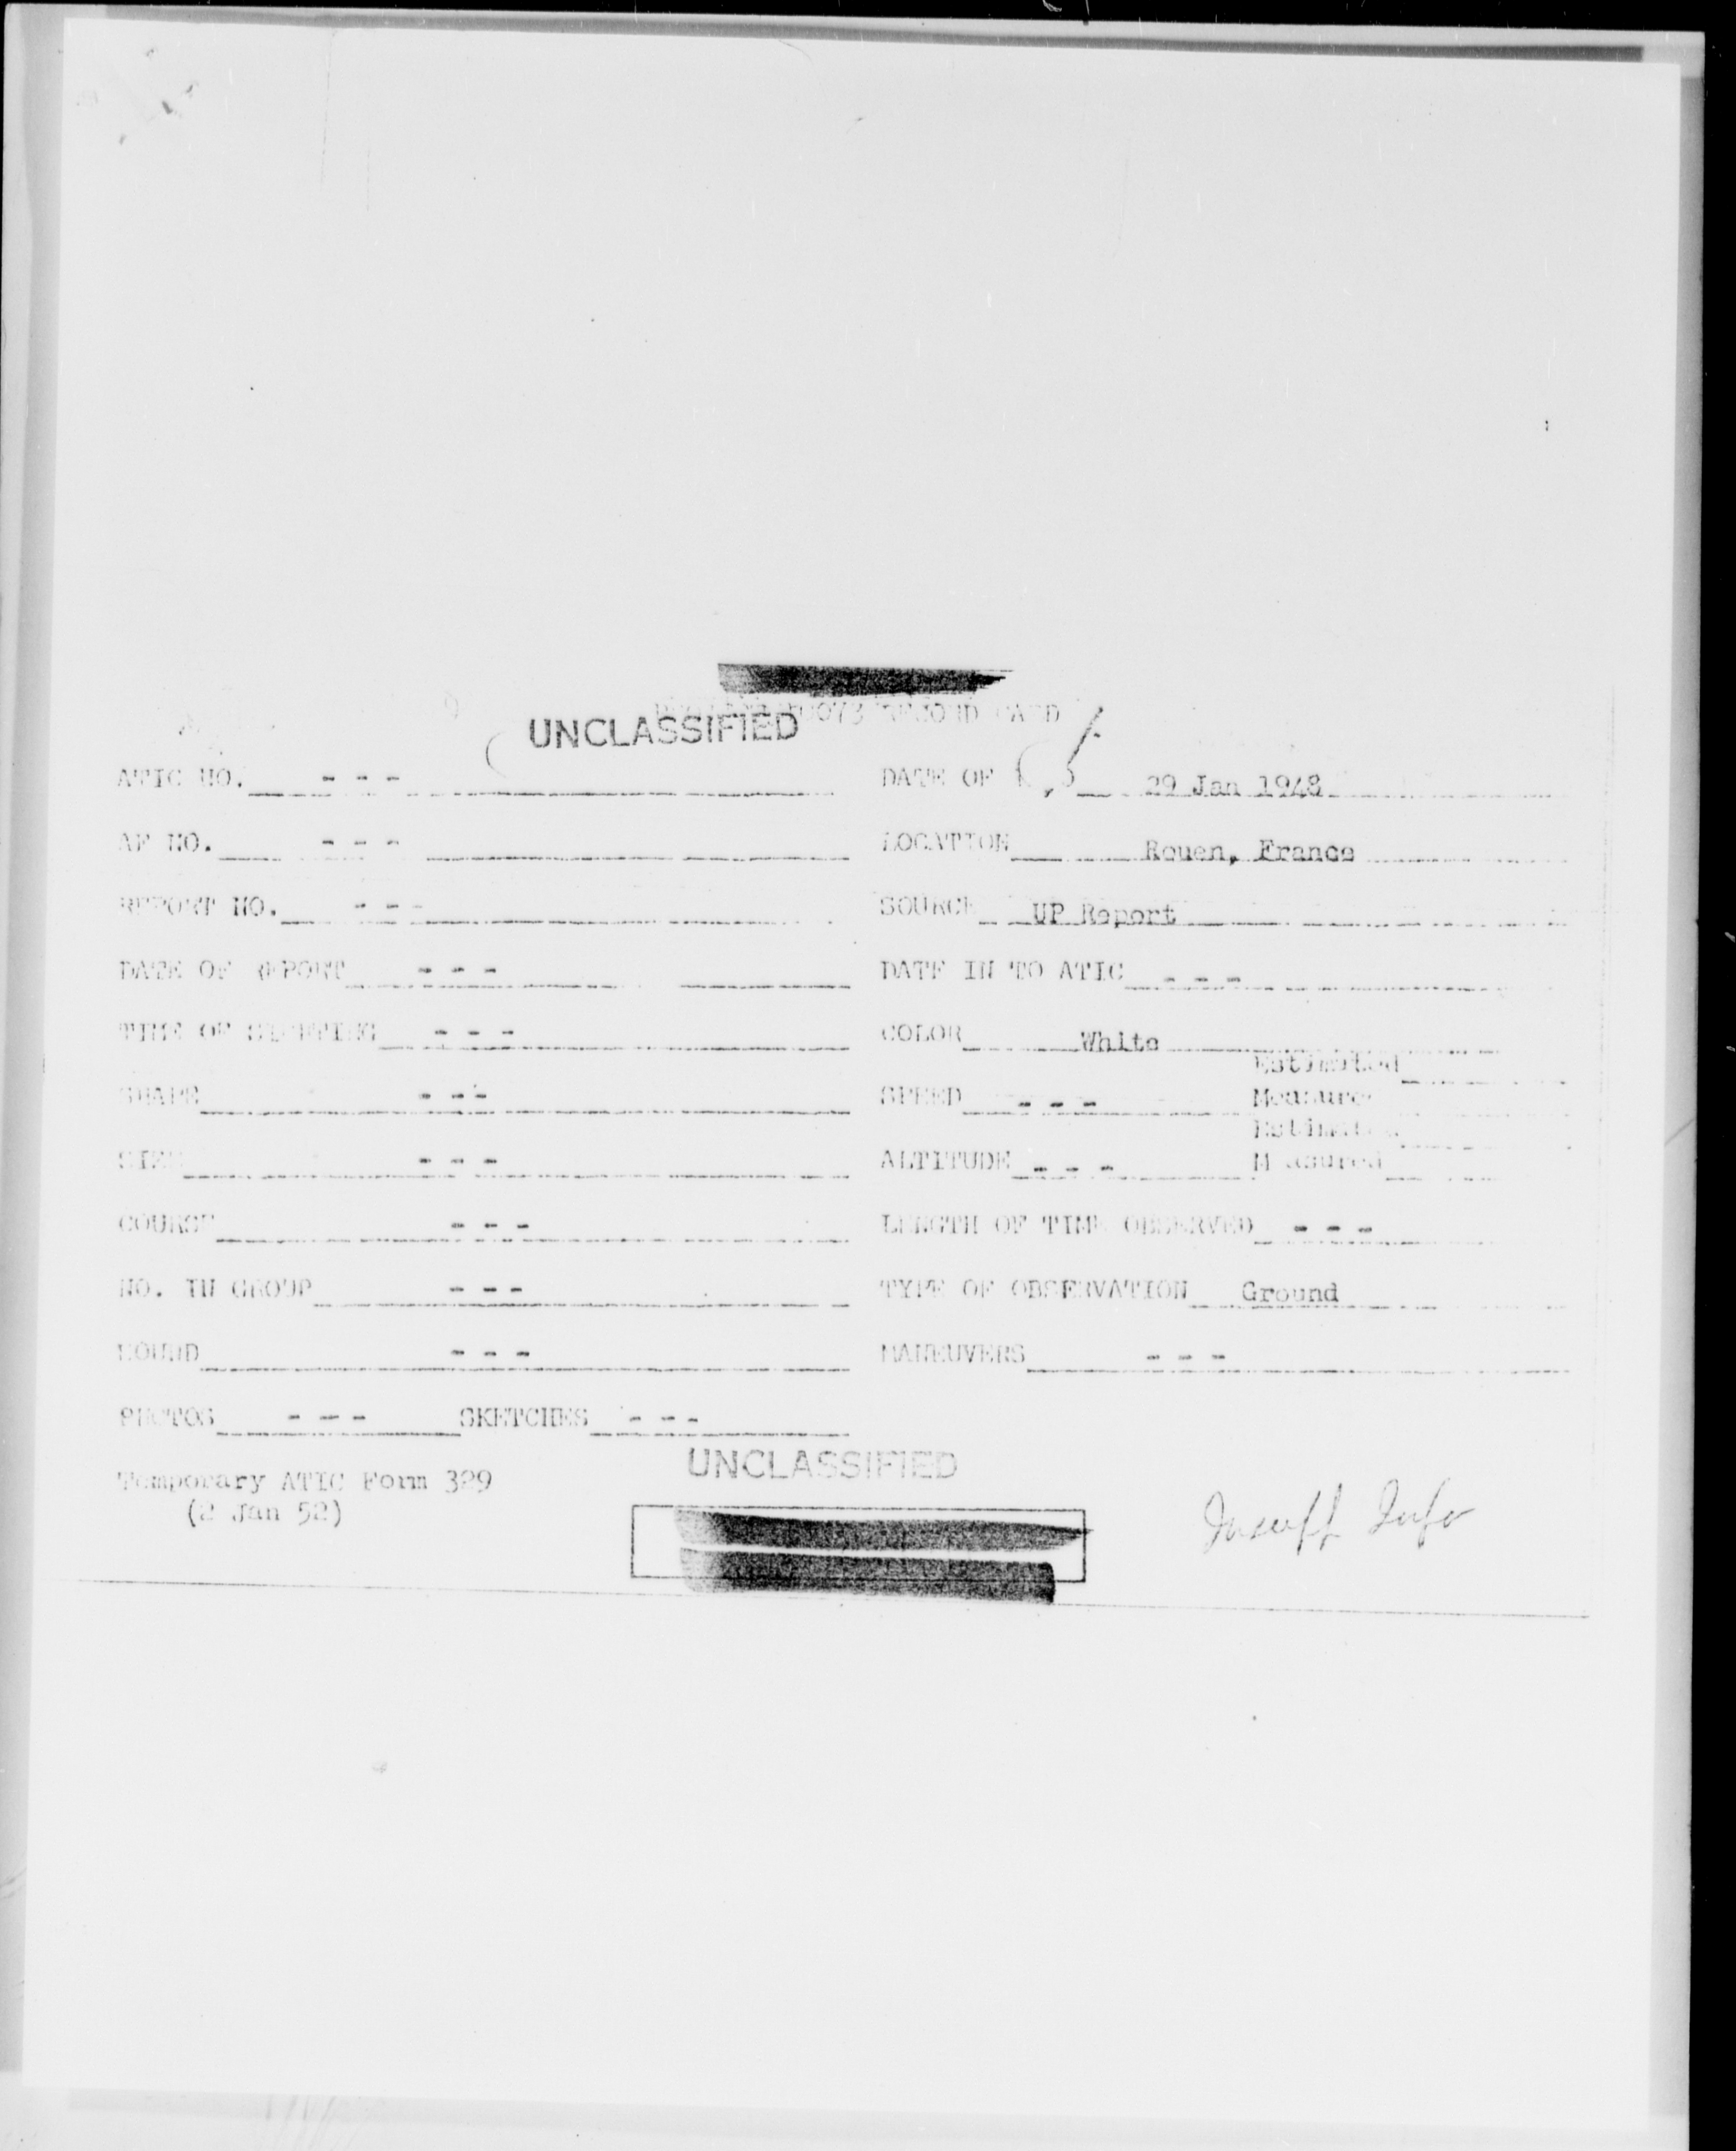 UNCLASSIFIED RECORD CARD
ATIC NO. - - - DATE OF 29 Jan 1948
AF NO. - - - LOCATION Rouen, France
REPORT NO. - - - SOURCE UP Report
DATE OF REPORT - - - DATE IN TO ATIC - - -
TIME OF SIGHTING - - - COLOR White
Estimated
SHAPE - - - SPEED - - - Measured
Estimated
SIZE - - - ALTITUDE - - - Measured
COURSE - - - LENGTH OF TIME OBSERVED - - -
NO. IN GROUP - - - TYPE OF OBSERVATION Ground
SOUND - - - MANEUVERS - - -
PHOTOS - - - SKETCHES - - -
UNCLASSIFIED
Temporary ATIC Form 329
(2 Jan 52)
Insuff Info